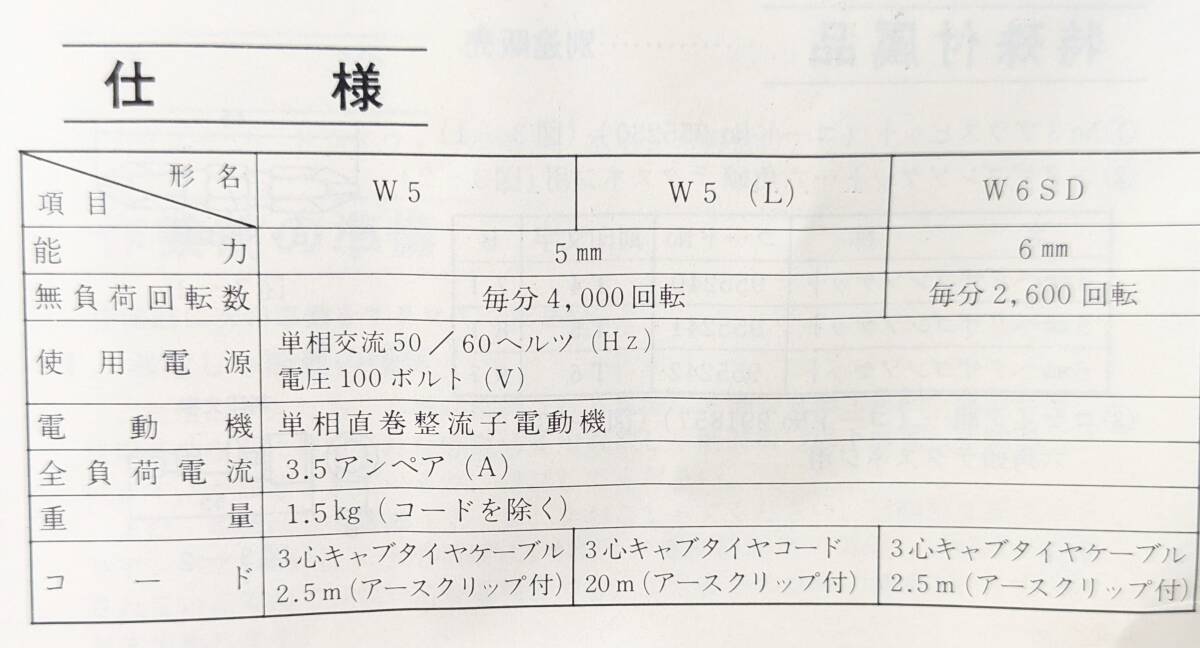 仕様
形名
項目
W5
W5 (L)
W6SD
能力
5㎜
6㎜
無負荷回転数
毎分4,000回転
毎分2,600回転
使用電源
単相交流50／60ヘルツ (Hz)
電圧100ボルト (V)
電動機
単相直巻整流子電動機
全負荷電流
3.5アンペア (A)
重量
1.5kg (コードを除く)
コード
3心キャブタイヤケーブル
2.5m (アースクリップ付)
3心キャブタイヤコード
20m (アースクリップ付)
3心キャブタイヤケーブル
2.5m (アースクリップ付)
特殊付属品
別途販売